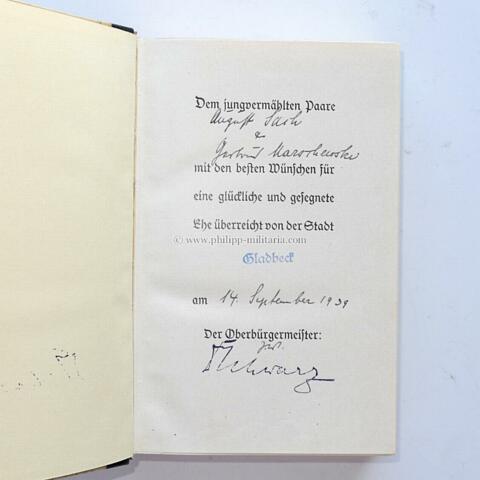 Dem jungvermählten Paare
August Sach
&
Gertrud Marschewski
mit den besten Wünschen für
eine glückliche und gesegnete
Ehe überreicht von der Stadt
© www.philipp-militaria.com
Gladbeck
am 14. September 1939
Der Oberbürgermeister:
Schwarz